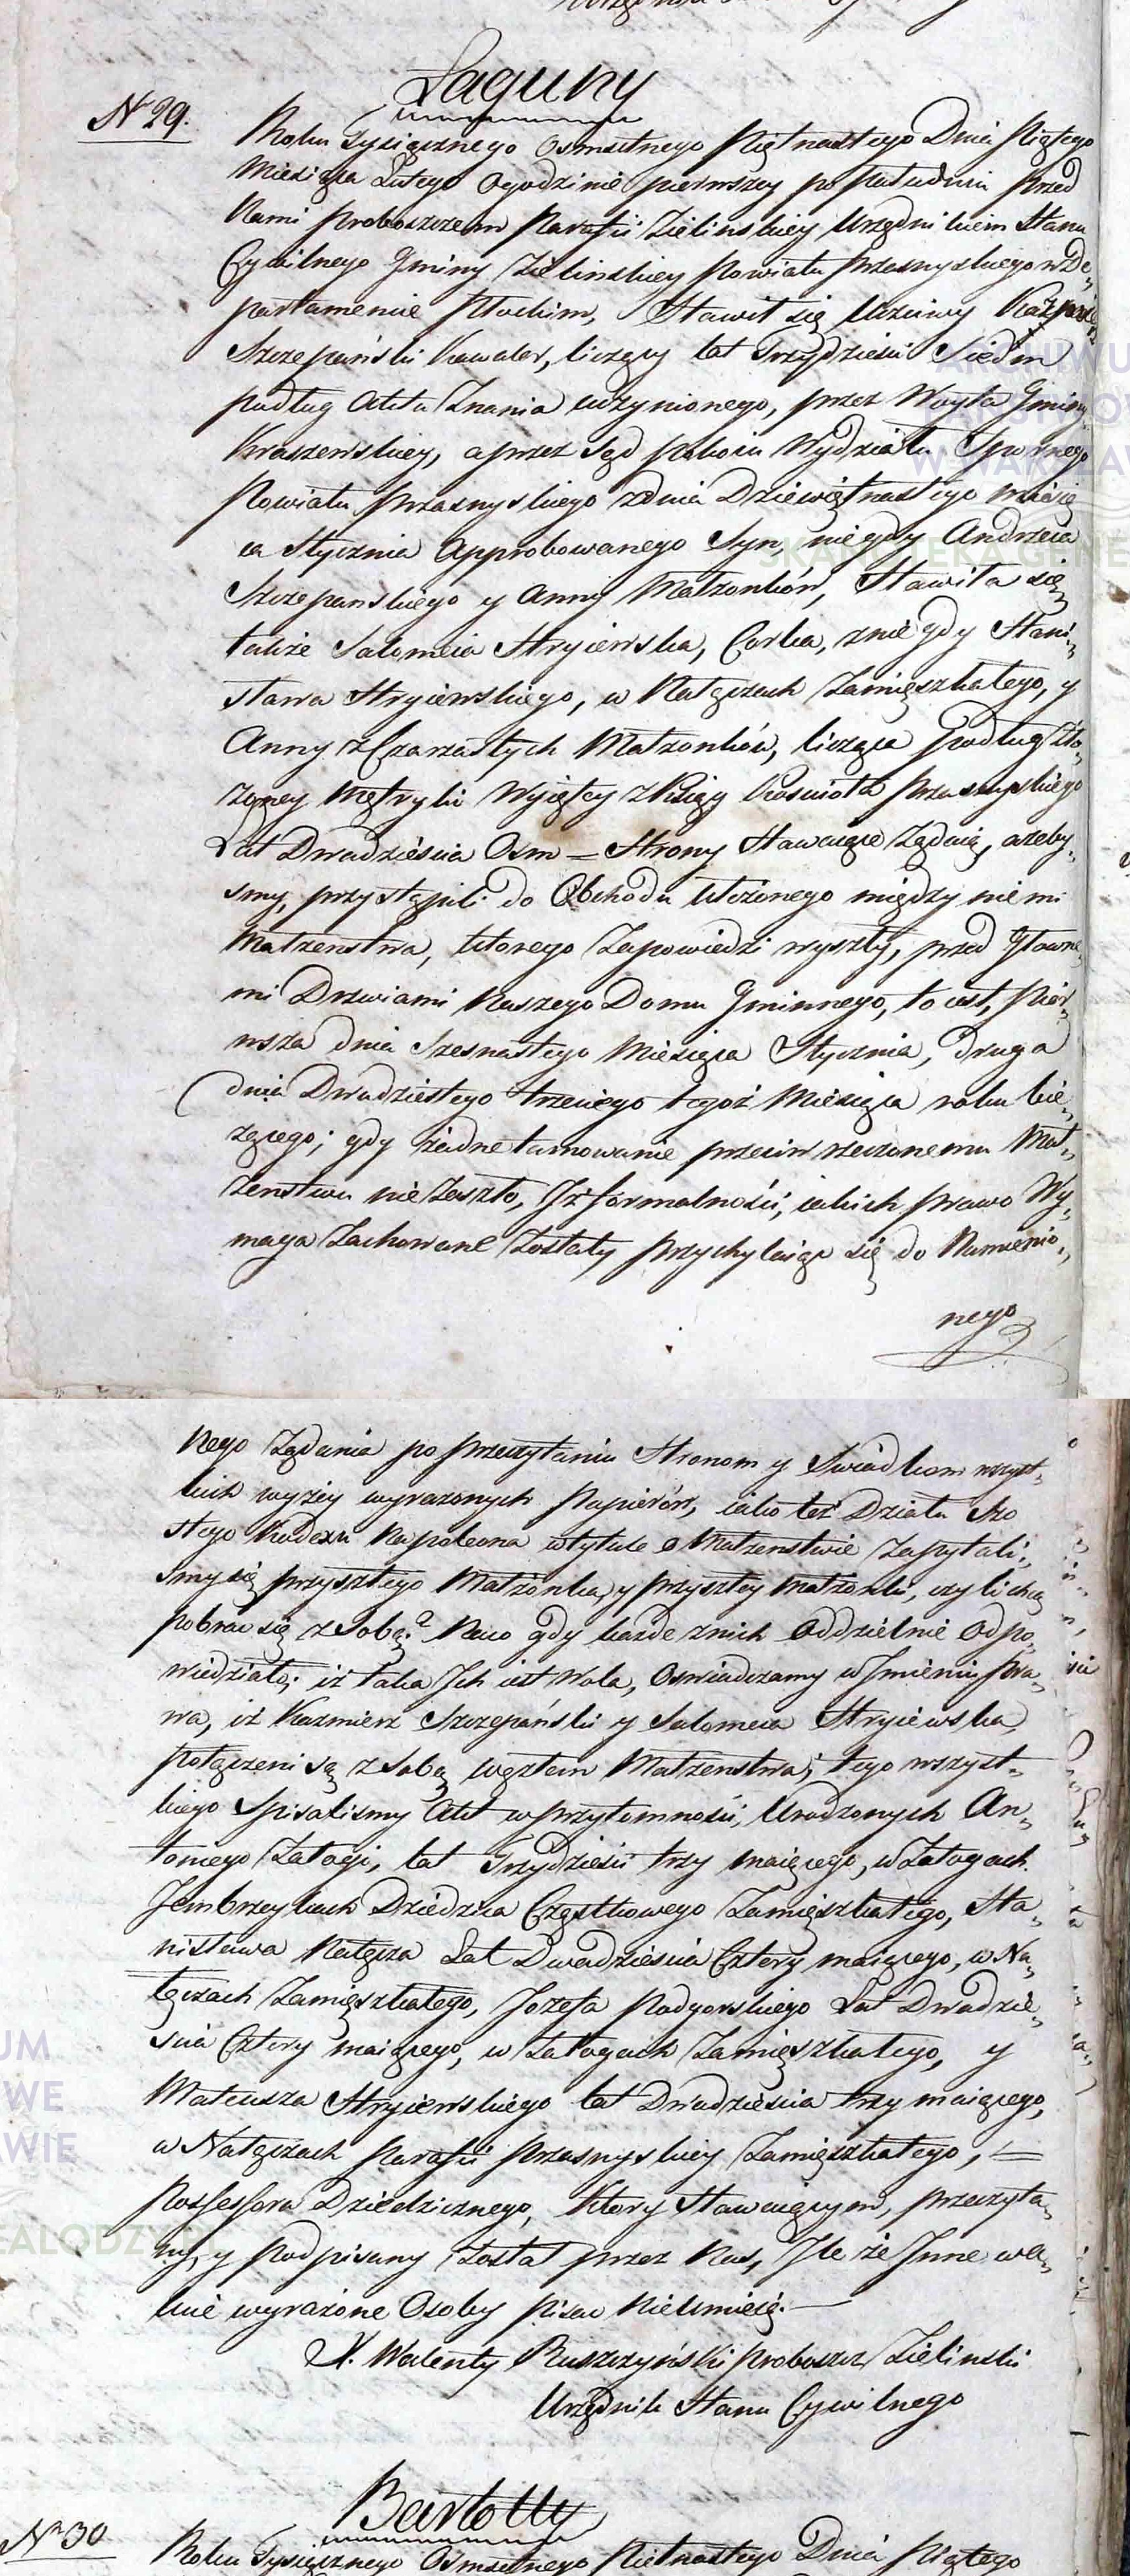 Łaguny
Nr 29.
Roku Tysiącznego Osmsetnego Piętnastego Dnia Piątego
Miesiąca Lutego o godzinie pierwszey po Południu przed
Nami Proboszczem Parafii Zielinskiey Urzędnikiem Stanu
Cywilnego Gminy Zielinskiey Powiatu Przasnyskiego w De„
partamencie Płockim, Stawił się Uczciwy
Szczepański Kawaler, liczący lat Trzydzieści Siedm
podług Aktu Znania uczynionego, przez Woyta Gminy
Kraszewskiey, a przez Sąd Pokoiu Wydziału Spornego
Powiatu Przasnyskiego z dnia Dziewiętnastego miesią
ca Stycznia Approbowanego Syn, niegdy Andrzeia
Szczepanskiego y Anny Małzonków, Stawiła się
także Salomeia Stryiewska, Corka, z niegdy Stani„
sława Stryiewskiego, w Nałęczach Zamięszkałego, y
Anny z Czarzastych Małzonków, licząca podług Zło„
zoney Mętryki Wyiętey z Księgi Koscioła Przasnyskiego
Lat Dwadzieścia Osm = Strony Stawaiące Ządaią, azeby„
smy, przystąpili do Obchodu Ułożonego między niemi
Małzenstwa, ktorego Zapowiedzi wyszły, przed Głowne„
mi Drzwiami Naszego Domu Gminnego, to iest, Pier„
wsza dnia Szesnastego Miesiąca Stycznia, druga
dnia Dwudziestego trzeciego tegoż Miesiąca roku bie„
zącego; gdy żadne tamowanie przeciw rzeczonemu Mał„
zenstwu nie Zaszło, Iż formalności, iakich prawo Wy„
maga Zachowane Zostały przychylaiąc się do Namienio„
nego
Nego Ządania po przeczytaniu Stronom y Swiadkom wszyst„
kich wyżey wyrazonych Papierów, iako też Działu Szo
stego Kodexu Napoleona w tytule o Małzenstwie Zapytali„
smy się przyszłego Małżonka, y przyszłey Małzonki, czyli chcą
pobrać się z Sobą? Na co gdy każde z nich Oddzielnie Odpo„
wiedziało; iż taka Ich iest Wola, Oswiadczamy w Imieniu Pra„
wa, iż Kazmierz Szczepański y Salomeia Stryiewska,
połączeni są z Sobą węzłem Małzenstwa; tego wszyst„
kiego Spisalismy Akt w przytomności, Urodzonych An„
toniego Załogi, lat Trzydzieści trzy maiącego, w Załogach
Jembrzykach Dziedzica Cząstkowego Zamięszkałego, Sta„
nisława Nałęcza Lat Dwadzieścia Cztery maiącego, w Na„
łęczach Zamięszkałego, Jozefa Podgorskiego Lat Dwadzie„
scia Cztery maiącego, w Załogach Zamięszkałego, y
Mateusza Stryiewskiego lat Dwadzieścia trzy maiącego,
w Nałęczach Parafii Przasnyskiey Zamięszkałego, =
Possessora Dziedzicznego, Ktory Stawaiącym, przeczyta„
ny, y Podpisany Został przez Nas, Ile że Inne w a„
kcie wyrażone Osoby Pisac Nieumieią. —
X. Walenty Ruszczyński Proboszcz Zielinski
Urzędnik Stanu Cywilnego
Bartołty
Nr 30
Roku Tysiącznego Osmsetnego Piętnastego Dnia Piątego